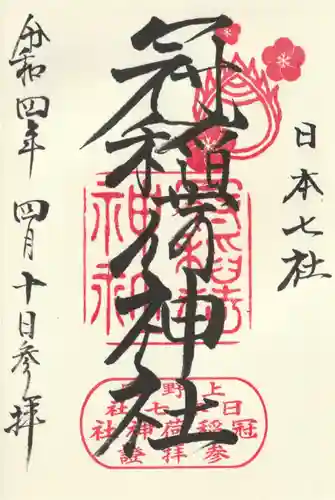 日本七社
冠稲荷神社
令和四年 四月十日参拝
上野国
日本七社
冠稲荷神社
参拝證